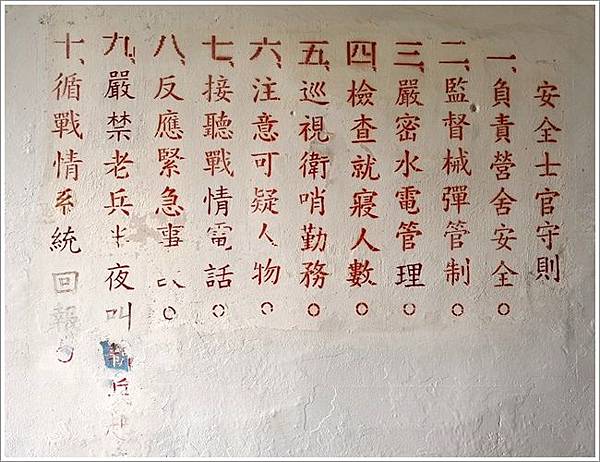 安全士官守則
一、負責營舍安全。
二、監督械彈管制。
三、嚴密水電管理。
四、檢查就寢人數。
五、巡視衛哨勤務。
六、注意可疑人物。
七、接聽戰情電話。
八、反應緊急事。
九、嚴禁老兵半夜叫新兵起
十、循戰情系統回報。